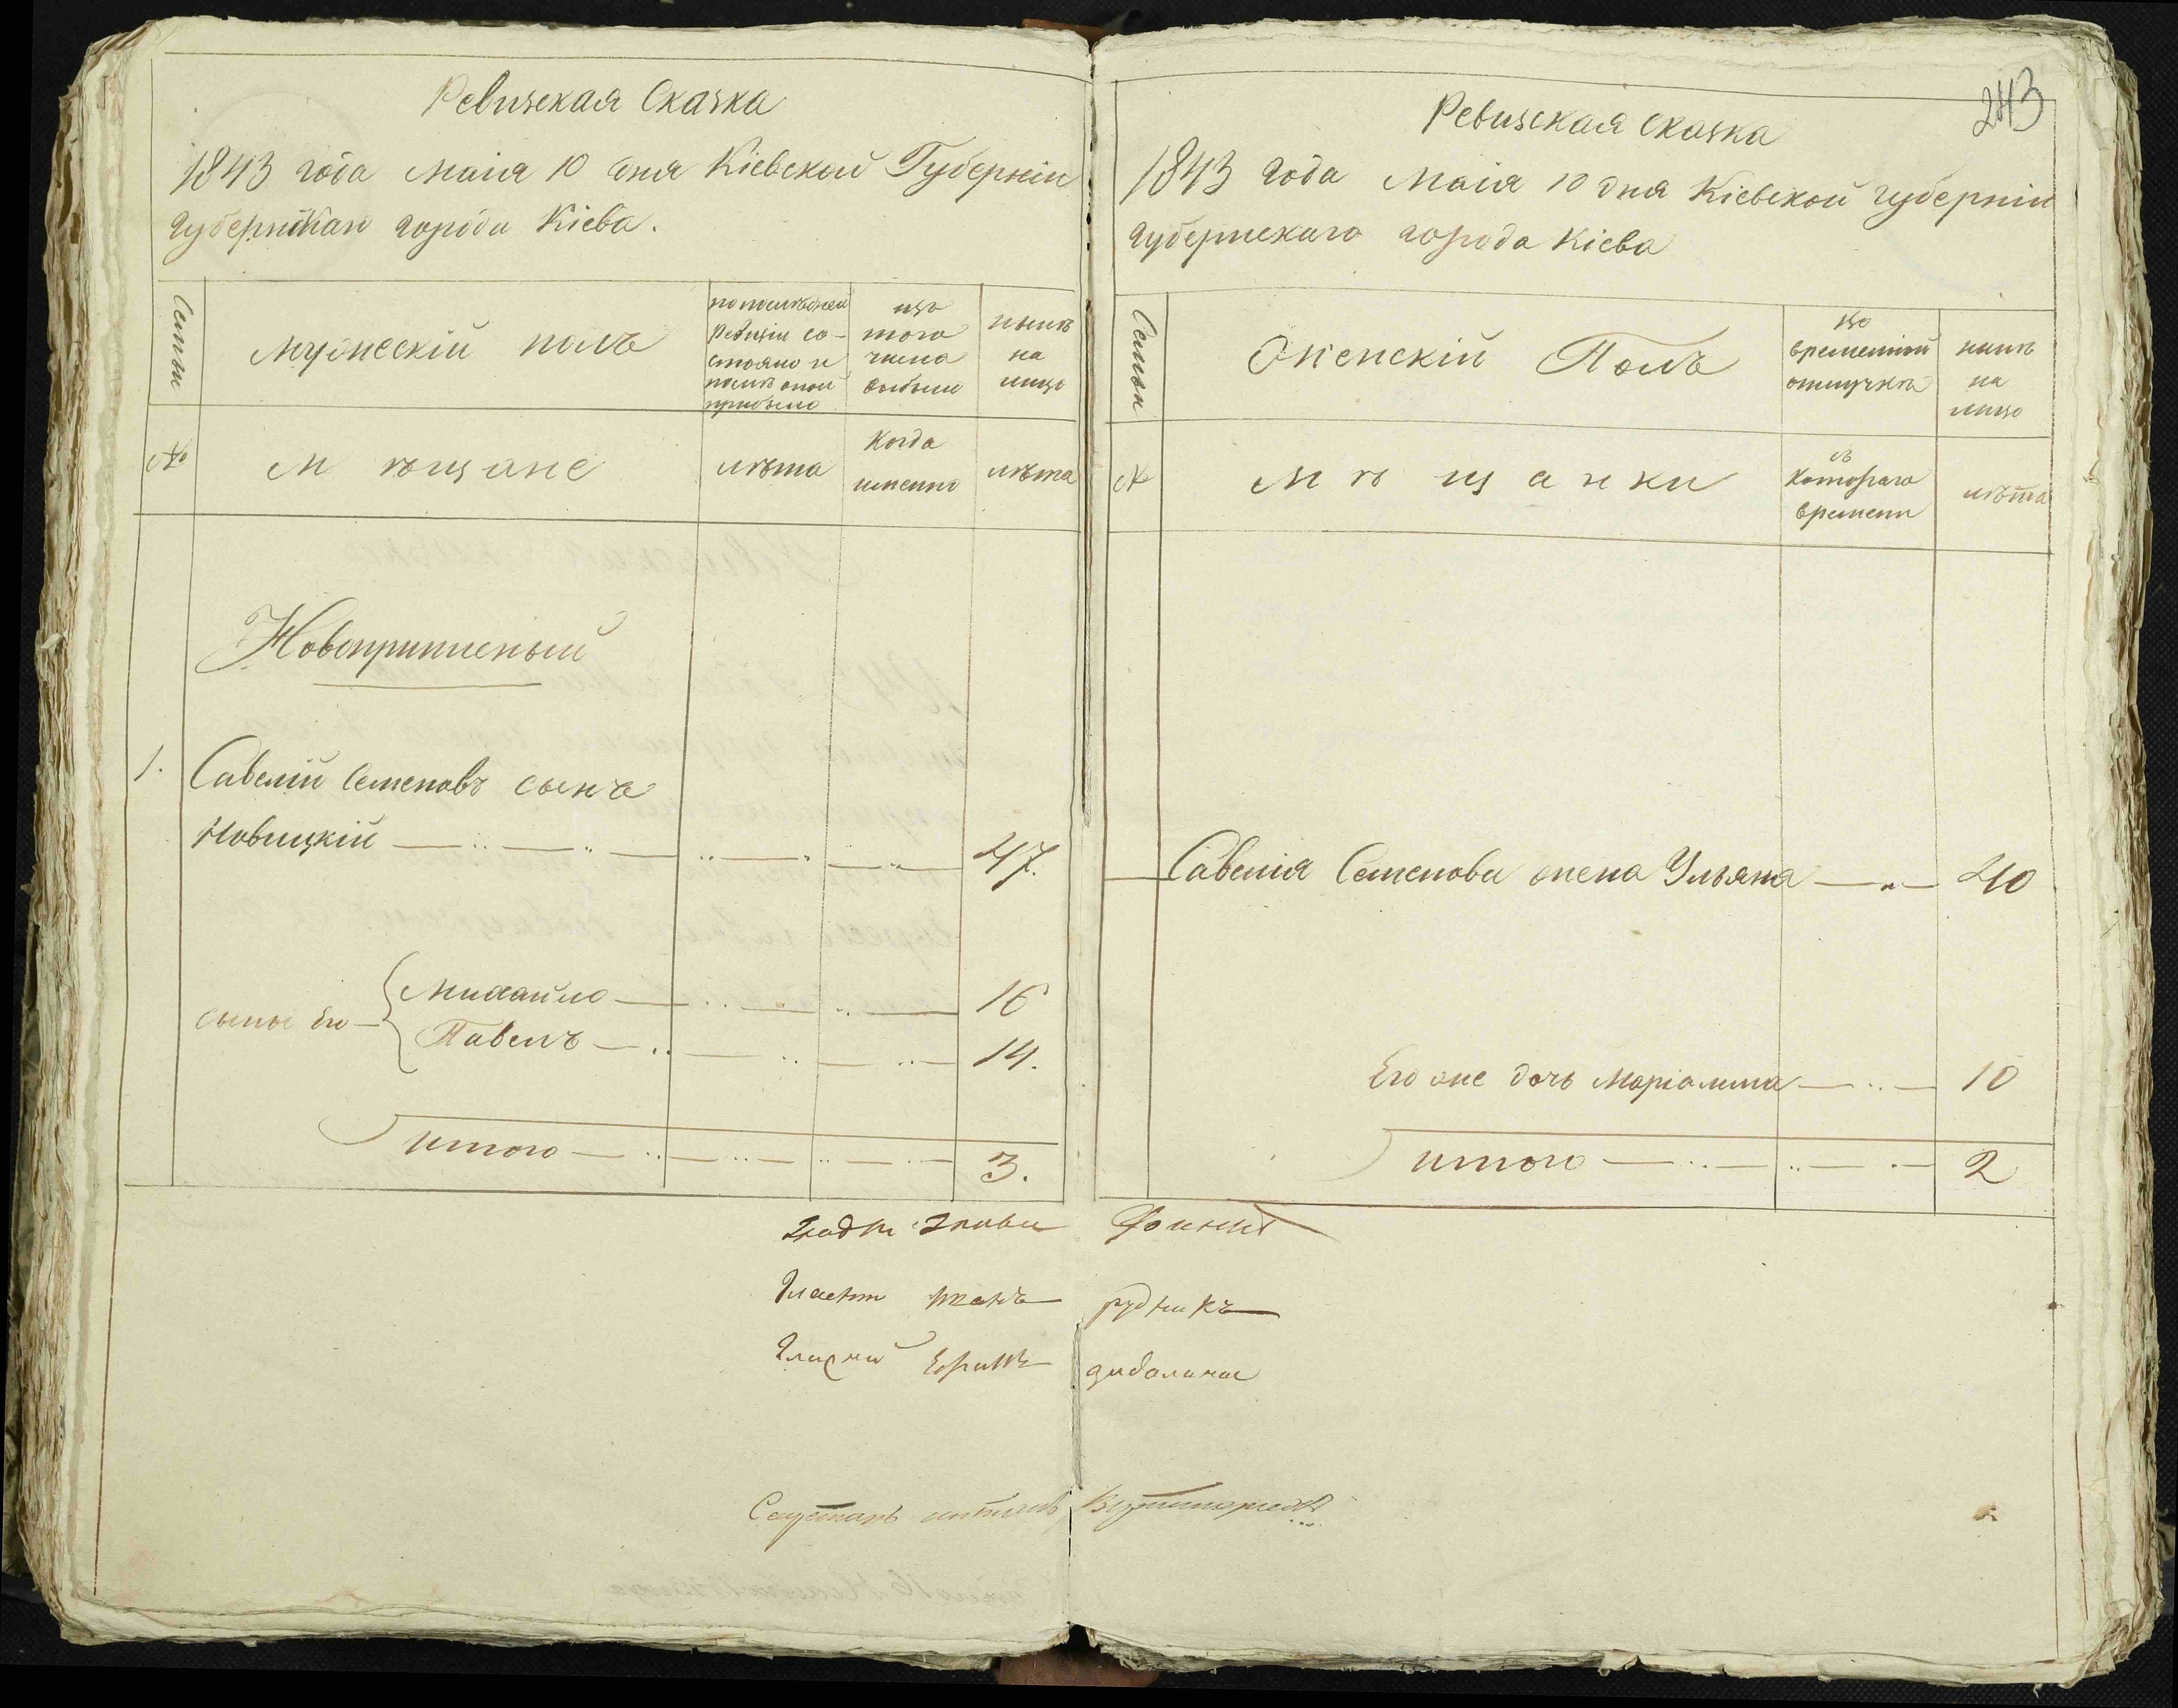 Ревизская Сказка
1843 года Маія 10 дня Кіевской Губерніи
Губернскаго города Кіева.
Семьи
Мужескій полъ
по последней
ревизіи со-
стояло и
после оной
прибыло
изъ
того
числа
выбыло
ныне
на
лицо
№
Мѣщане
лѣта
Когда
именно
лѣта
Новоприписный
1. Савелій Семеновъ сынъ
Новицкій 47.
сыны его
Михайло 16
Павелъ 14.
итого 3.
243
Ревизская сказка
1843 года Маія 10 дня Кіевской губерніи
Губернскаго города Кіева
Семьи
Женскій Полъ
во
временной
отлучкѣ
нынѣ
на
лицо
№
Мѣщанки
съ
Котораго
времени
лѣта
Савелія Семенова жена Ульяна 40
Его же дочь Маріамна 10
итого 2
Гласны Иванъ рудникъ
Гласный